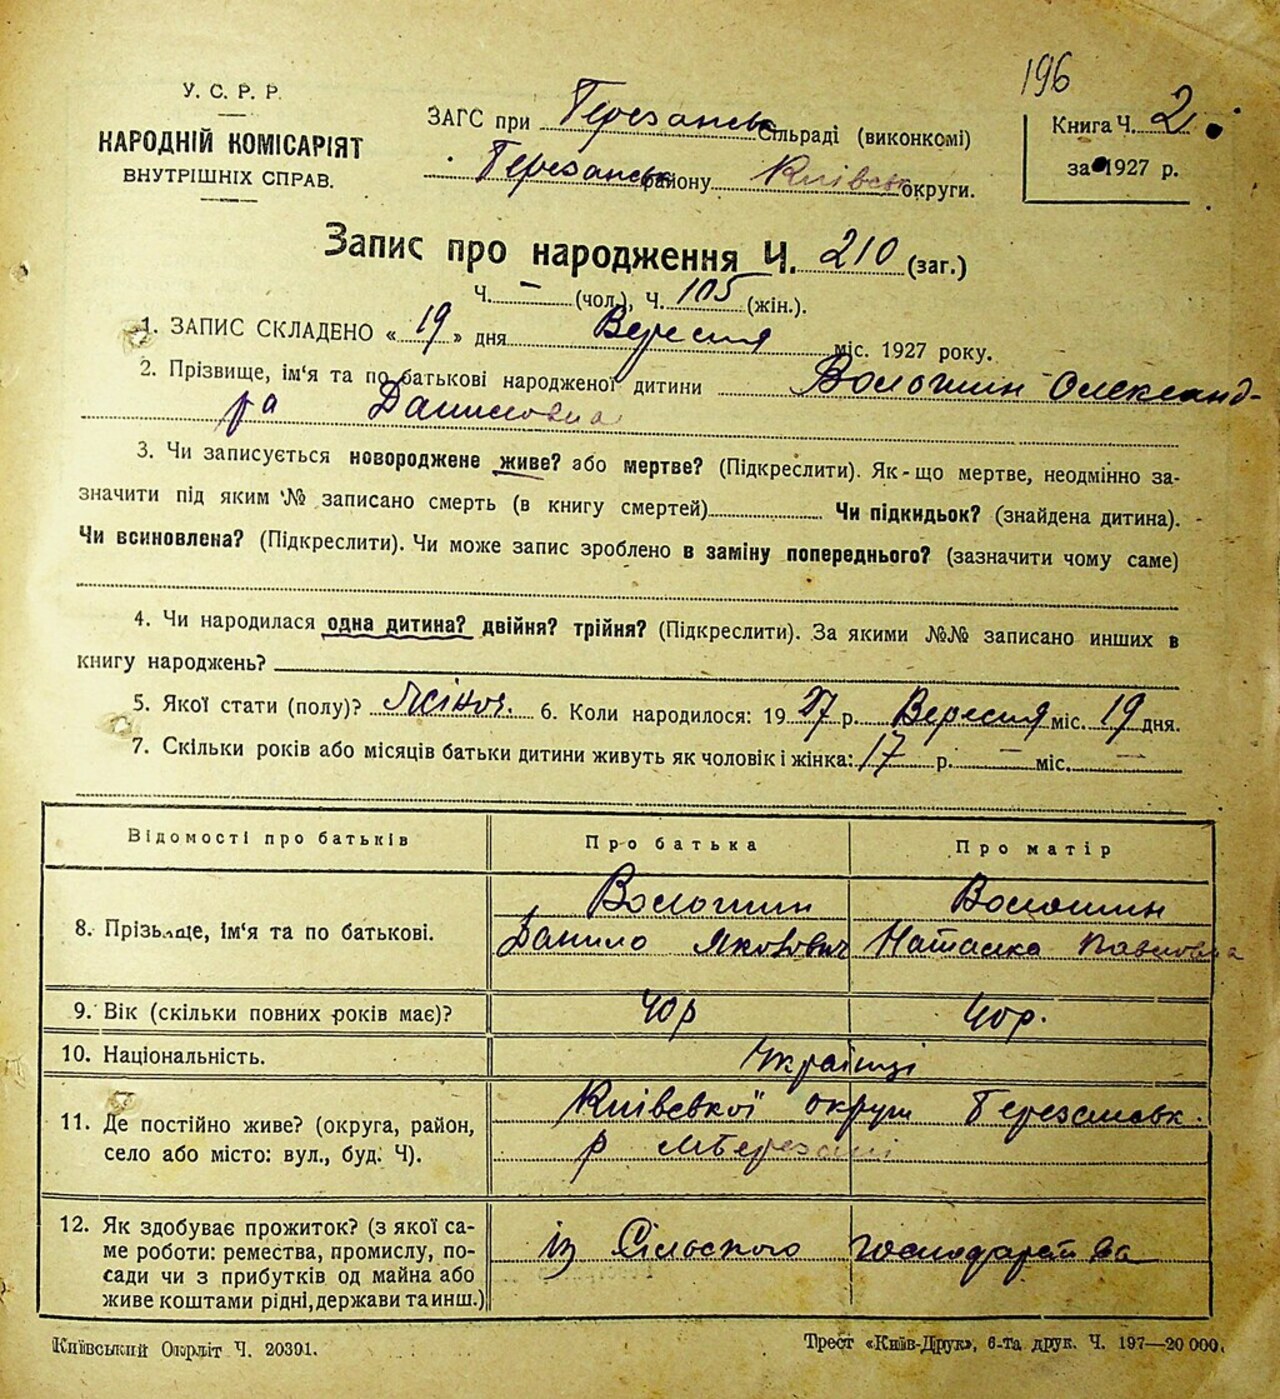 196
У. С. Р. Р.
НАРОДНІЙ КОМІСАРІЯТ
ВНУТРІШНІХ СПРАВ.
ЗАГС при Березанськ Сільраді (виконкомі)
Березанськ району Київськ округи.
Книга Ч. 2
за 1927 р.
Запис про народження Ч. 210 (заг.)
Ч. — (чол.), Ч. 105 (жін.).
1. ЗАПИС СКЛАДЕНО « 19 » дня Вересня міс. 1927 року.
2. Прізвище, ім‘я та по батькові народженої дитини Волошин Олександ-
ра Даниловна
3. Чи записується новороджене живе? або мертве? (Підкреслити). Як-що мертве, неодмінно за-
значити під яким № записано смерть (в книгу смертей) Чи підкидьок? (знайдена дитина).
Чи всиновлена? (Підкреслити). Чи може запис зроблено в заміну попереднього? (зазначити чому саме)
4. Чи народилася одна дитина? двійня? трійня? (Підкреслити). За якими №№ записано инших в
книгу народжень?
5. Якої стати (полу)? Жіноч. 6. Коли народилося: 1927 р. Вересня міс. 19 дня.
7. Скільки років або місяців батьки дитини живуть як чоловік і жінка: 17 р. — міс. —
Відомості про батьків Про батька Про матір
8. Прізвище, ім‘я та по батькові. Волошин Волошин
Данило Якович Наталка Павловна
9. Вік (скільки повних років має)? 40 р 40 р.
10. Національність. Українці
11. Де постійно живе? (округа, район,
село або місто: вул., буд. Ч).
Київської округи Березанськ.
р м Березані
12. Як здобуває прожиток? (з якої са-
ме роботи: ремества, промислу, по-
сади чи з прибутків од майна або
живе коштами рідні, держави та инш.)
із Сільского господарства
Київський Окрліт Ч. 20391.
Трест «Київ-Друк», 6-та друк. Ч. 197—20 000.